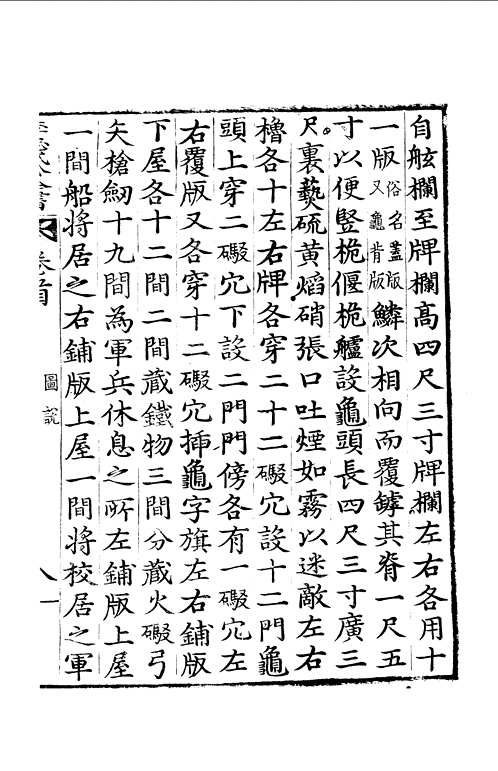 自舷欄至牌欄高四尺三寸牌欄左右各用十
一版俗名蓋版又龜背版鱗次相向而覆罅其脊一尺五
寸以便竪桅偃桅艫設龜頭長四尺三寸廣三
尺裏爇硫黃焰硝張口吐煙如霧以迷敵左右
櫓各十左右牌各穿二十二礟穴設十二門龜
頭上穿二礟穴下設二門門傍各有一礟穴左
右覆版又各穿十二礟穴揷龜字旗左右鋪版
下屋各十二間二間藏鐵物三間分藏火礟弓
矢槍劒十九間為軍兵休息之所左鋪版上屋
一間船将居之右鋪版上屋一間将校居之軍
卷首
圖說